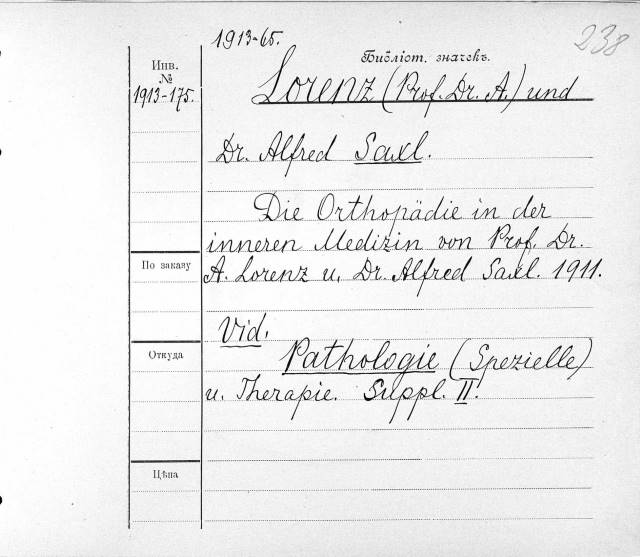 1913-65.
238
Инв.
№
1913-175.
Библіот. значекъ.
Lorenz (Prof. Dr. A.) und
Dr. Alfred Saxl.
Die Orthopädie in der
inneren Medizin von Prof. Dr.
A. Lorenz u. Dr. Alfred Saxl. 1911.
По заказу
Vid.
Откуда
Pathologie (Spezielle)
u. Therapie. Suppl. II.
Цѣна